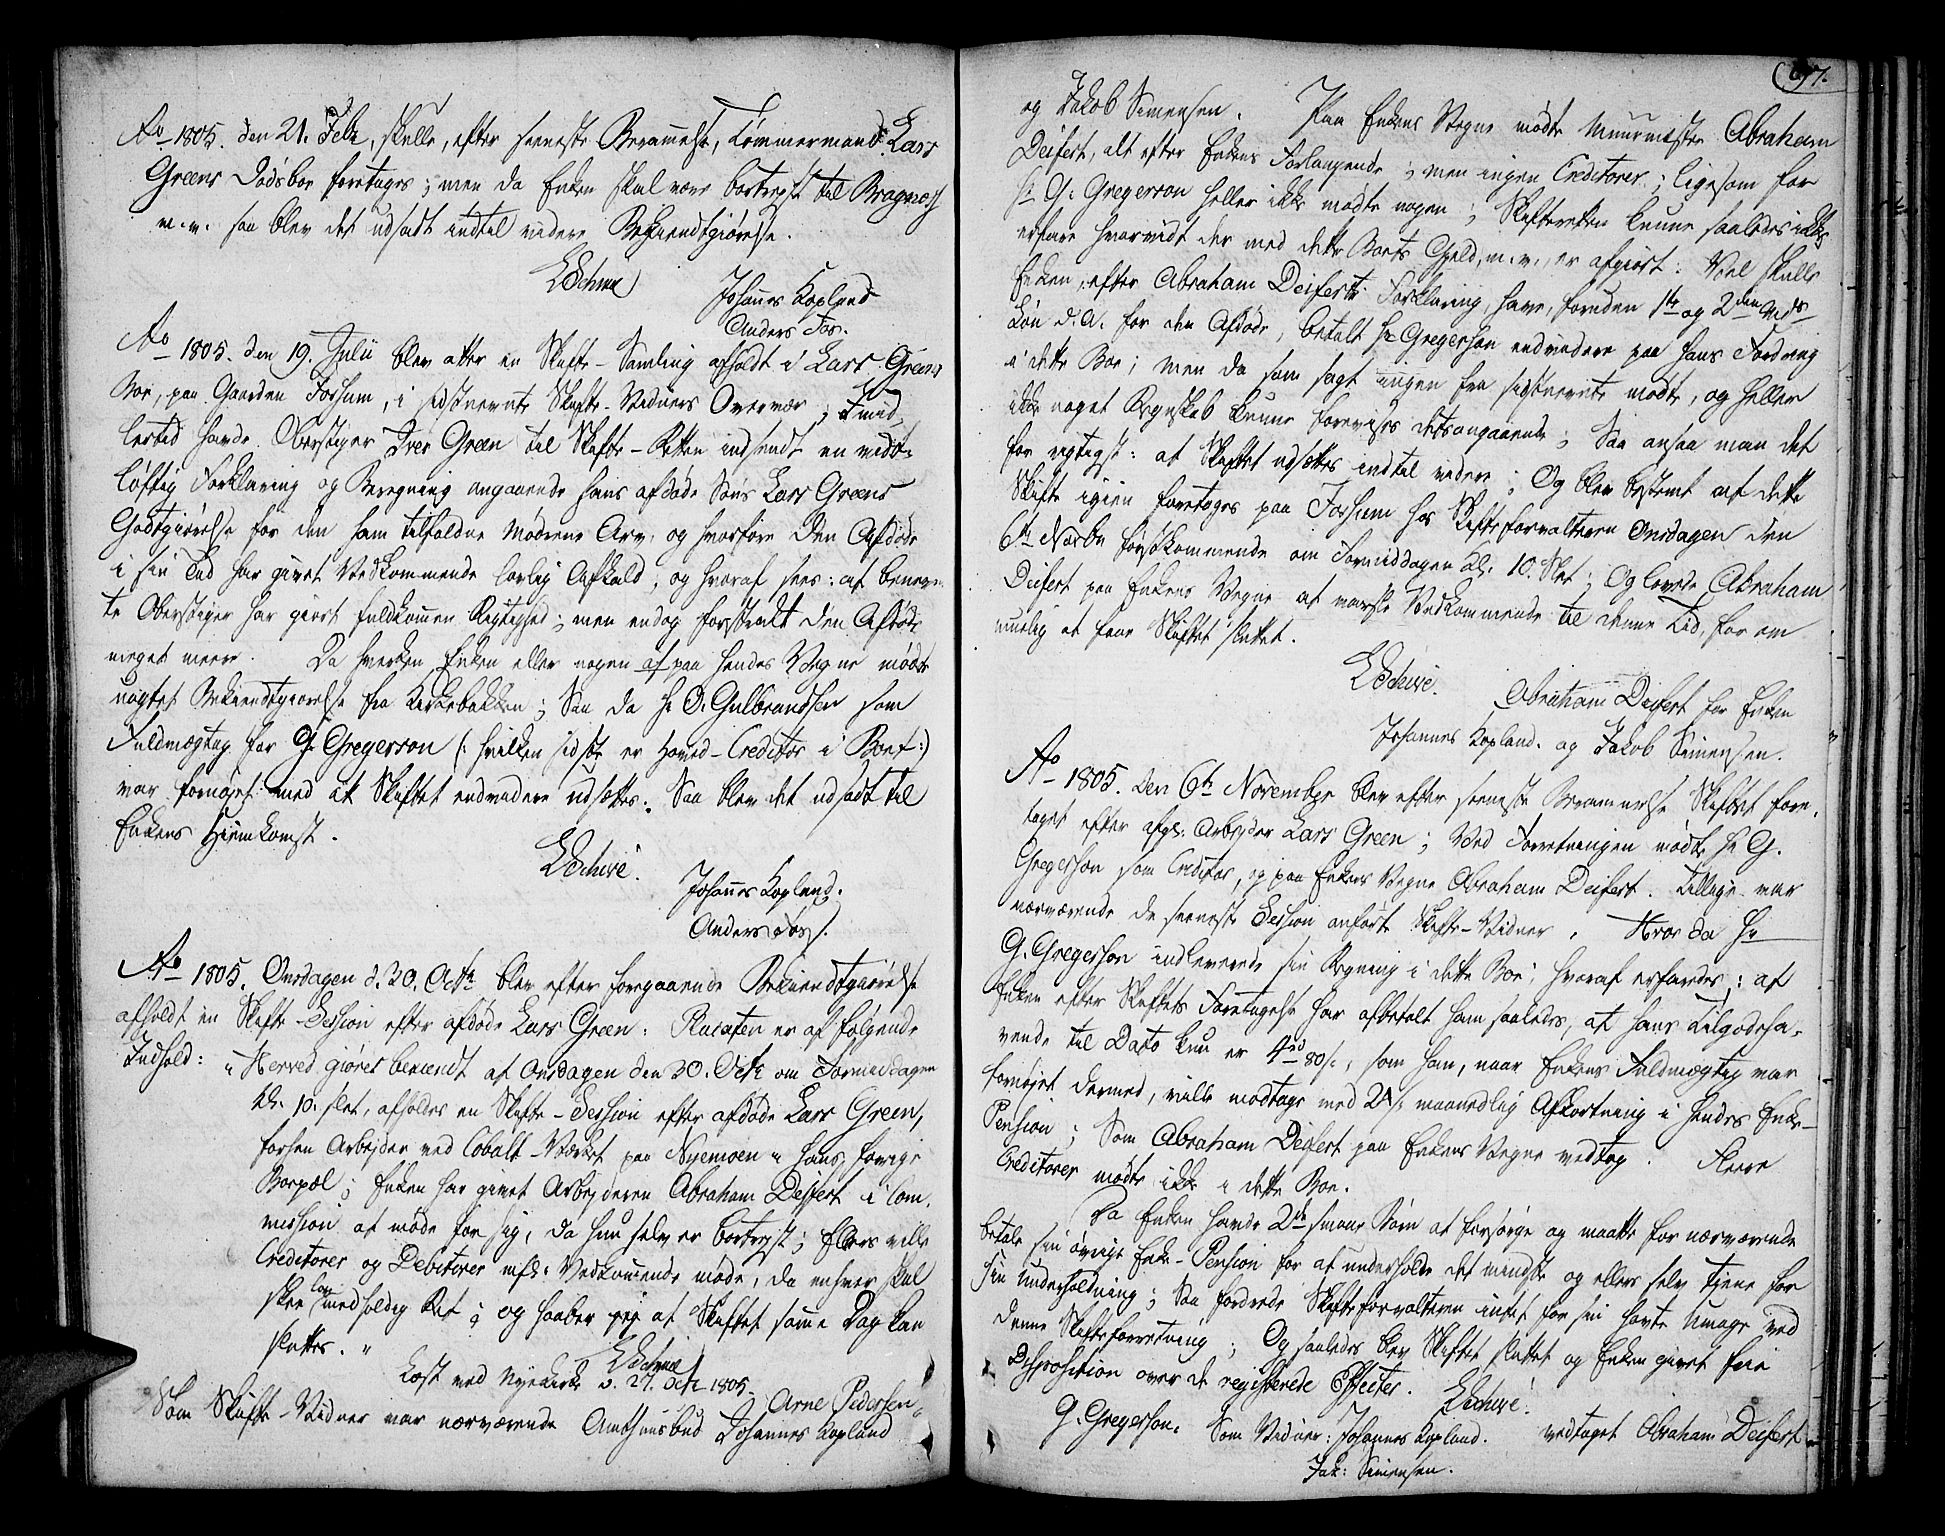 Ao 1805. den 21. Febr, skulle, efter seeneste Berammelse, Tømmermand Lars
Greens Dødsboe foretages; men da Enken skal være bortreyst til Bragnæss
m. v. saa blev det udsadt indtil videre Bekiendtgiørelse.
Johannes Kopland
Anders Fos.
Ao 1805. den 19. Julii blev atter en Skifte-Samling afholdt i Lars Greens
Boe, paa Gaarden Fossum, i sidstnevnte Skifte-Vidners Overvær; Imid-
lertid havde Oberstiger Iver Green til Skifte-Retten indsendt en vidt-
løftig Forklaring og Beregning angaaende hans afdøde Søns Lars Greens
Godtgiørelse for den ham tilfaldne Mødrene Arv, og hvorfore Den Afdøde
i sin Tid har givet Vedkommende lovlig Afkald, og hvoraf sees: at benevn-
te Oberstiger har giort fuldkommen Rigtighed; men endog forstrakt Den Afdøde
meget meere. Da hverken Enken eller nogen af paa hendes Vegne mødte
uagtet Bekiendtgiørelse fra Kirkebakken; Saa da Hr O. Gulbrandsen som
Fuldmægtig for G. Gregersson (: hvilken sidste er Hoved-Creditor i Boet :)
var fornøyet med at Skiftet endvidere udsættes; Saa blev det udsadt til
Enkens Hiemkomst.
Johannes Kopland.
Anders Foss.
Ao 1805. Onsdagen d. 30. Octbr blev efter foregaaende Bekiendtgiørelse
afholdt en Skifte-Session efter afdøde Lars Green: Placaten er af følgende
Indhold: "Herved giøres bekiendt at Onsdagen den 30. Octbr om Formiddagen
Kl. 10. slet, afholdes en Skifte-Session efter afdøde Lars Green,
forhen Arbejder ved Cobalt-Værket paa Nyemoen i hans havege
Boepæl; Enken har givet Arbejderen Abraham Deifert i Com-
mission at møde for sig, da hun selv er bortreyst; Ellers ville
Creditorer og Debitorer mfl. Vedkommende møde, da enhver skal
skee lovmedholdig Ret; og haaber jeg at Skiftet samme Dag kan
sluttes."
Læst ved Nyekirke d. 27. Octbr 1805.
Arne Pedersen
Som Skifte-Vidner var nærværende Amthuusbud Johannes Kopland
97.
og Jakob Simensen. Paa Enkens Vegne mødte Muurmester Abraham
Deifert, alt efter Enkens Forlangende; men ingen Creditorer; ligesom for
Hr G. Gregersson heller ikke mødte nogen; Skifteretten kunne saaledes ikke
erfare hvorvidt der med dette Boets Gield, m. v., er afgiort. Vel skulle
Enken, efter Abraham Deiferts Forklaring, have, foruden 1ste og 2den Mds
Løn d. A. for den Afdøde, betalt Hr Gregersson endvidere paa hans Fordring
i dette Boe; men da som sagt ingen fra sidstnevnte mødte, og heller
ikke noget Regnskab kunne forevises detsangaaende; Saa ansaa man det
for rigtigst: at Skiftet udsættes indtil videre; Og blev bestemt at dette
Skifte igien foretages paa Fossum hos Skifteforvalteren Onsdagen den
6te Novbr førstkommende om Formiddagen Kl. 10. Slet; Og lovede Abraham
Deifert paa Enkens Vegne at varsle Vedkommende til denne Tid, for om
muelig at faae Skiftet sluttet.
Abraham Deifert for Enken
Johannes Kopland. og Jakob Simensen.
Ao 1805. Den 6te Novembr blev efter seeneste Berammelse Skiftet fore-
taget efter afgl. Arbejder Lars Green; Ved Forretningen mødte Hr G.
Gregersson som Creditor, og paa Enkens Vegne Abraham Deifert. Tillige var
nærværende de seeneste Session anførte Skifte-Vidner. Hvor da Hr
G. Gregersson indleverede sin Regning i dette Boe, hvoraf erfaredes: at
Enken efter Skiftets Foretagelse har afbetalt ham saaledes, at hans Tilgodeha-
vende til Dato kun er 4rd 80s, som han, naar Enkens Fuldmægtig var
fornøjet dermed, ville modtage med 24s maanedlig Afkortning i hendes Enke-
Pension; Som Abraham Deifert paa Enkens Vegne vedtog. Fleere
Creditorer mødte ikke i dette Boe.
Da Enken havde 2de smaae Børn at forsørge og maatte for nærværende
betale sin øvrige Enke-Pension for at underholde det mindste og ellers selv tjene for
sin Underholdning; Saa fordrede Skifteforvalteren intet for sin havte Umage ved
denne Skifteforretning; Og saaledes blev Skiftet sluttet og Enken givet frie
Disposition over de registerede Effecter.
G. Gregersson. Som Vidner: Johannes Kopland. vedtaget Abraham Deifert
Jak: Simensen.